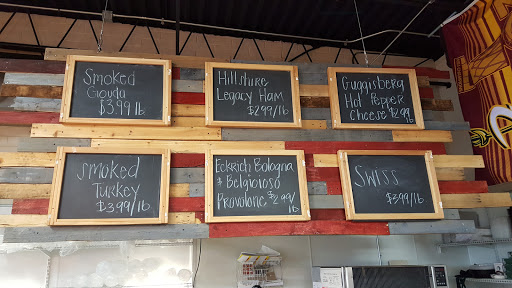 Smoked
Gouda
$3.99 lb
Hillshire
Legacy Ham
$2.99/lb
Guggisberg
Hot Pepper
Cheese $2.99 lb
Smoked
Turkey
$3.99/lb
Eckrich Bologna
& Belgioioso
Provolone $2.99/
lb
Swiss
$3.99/lb